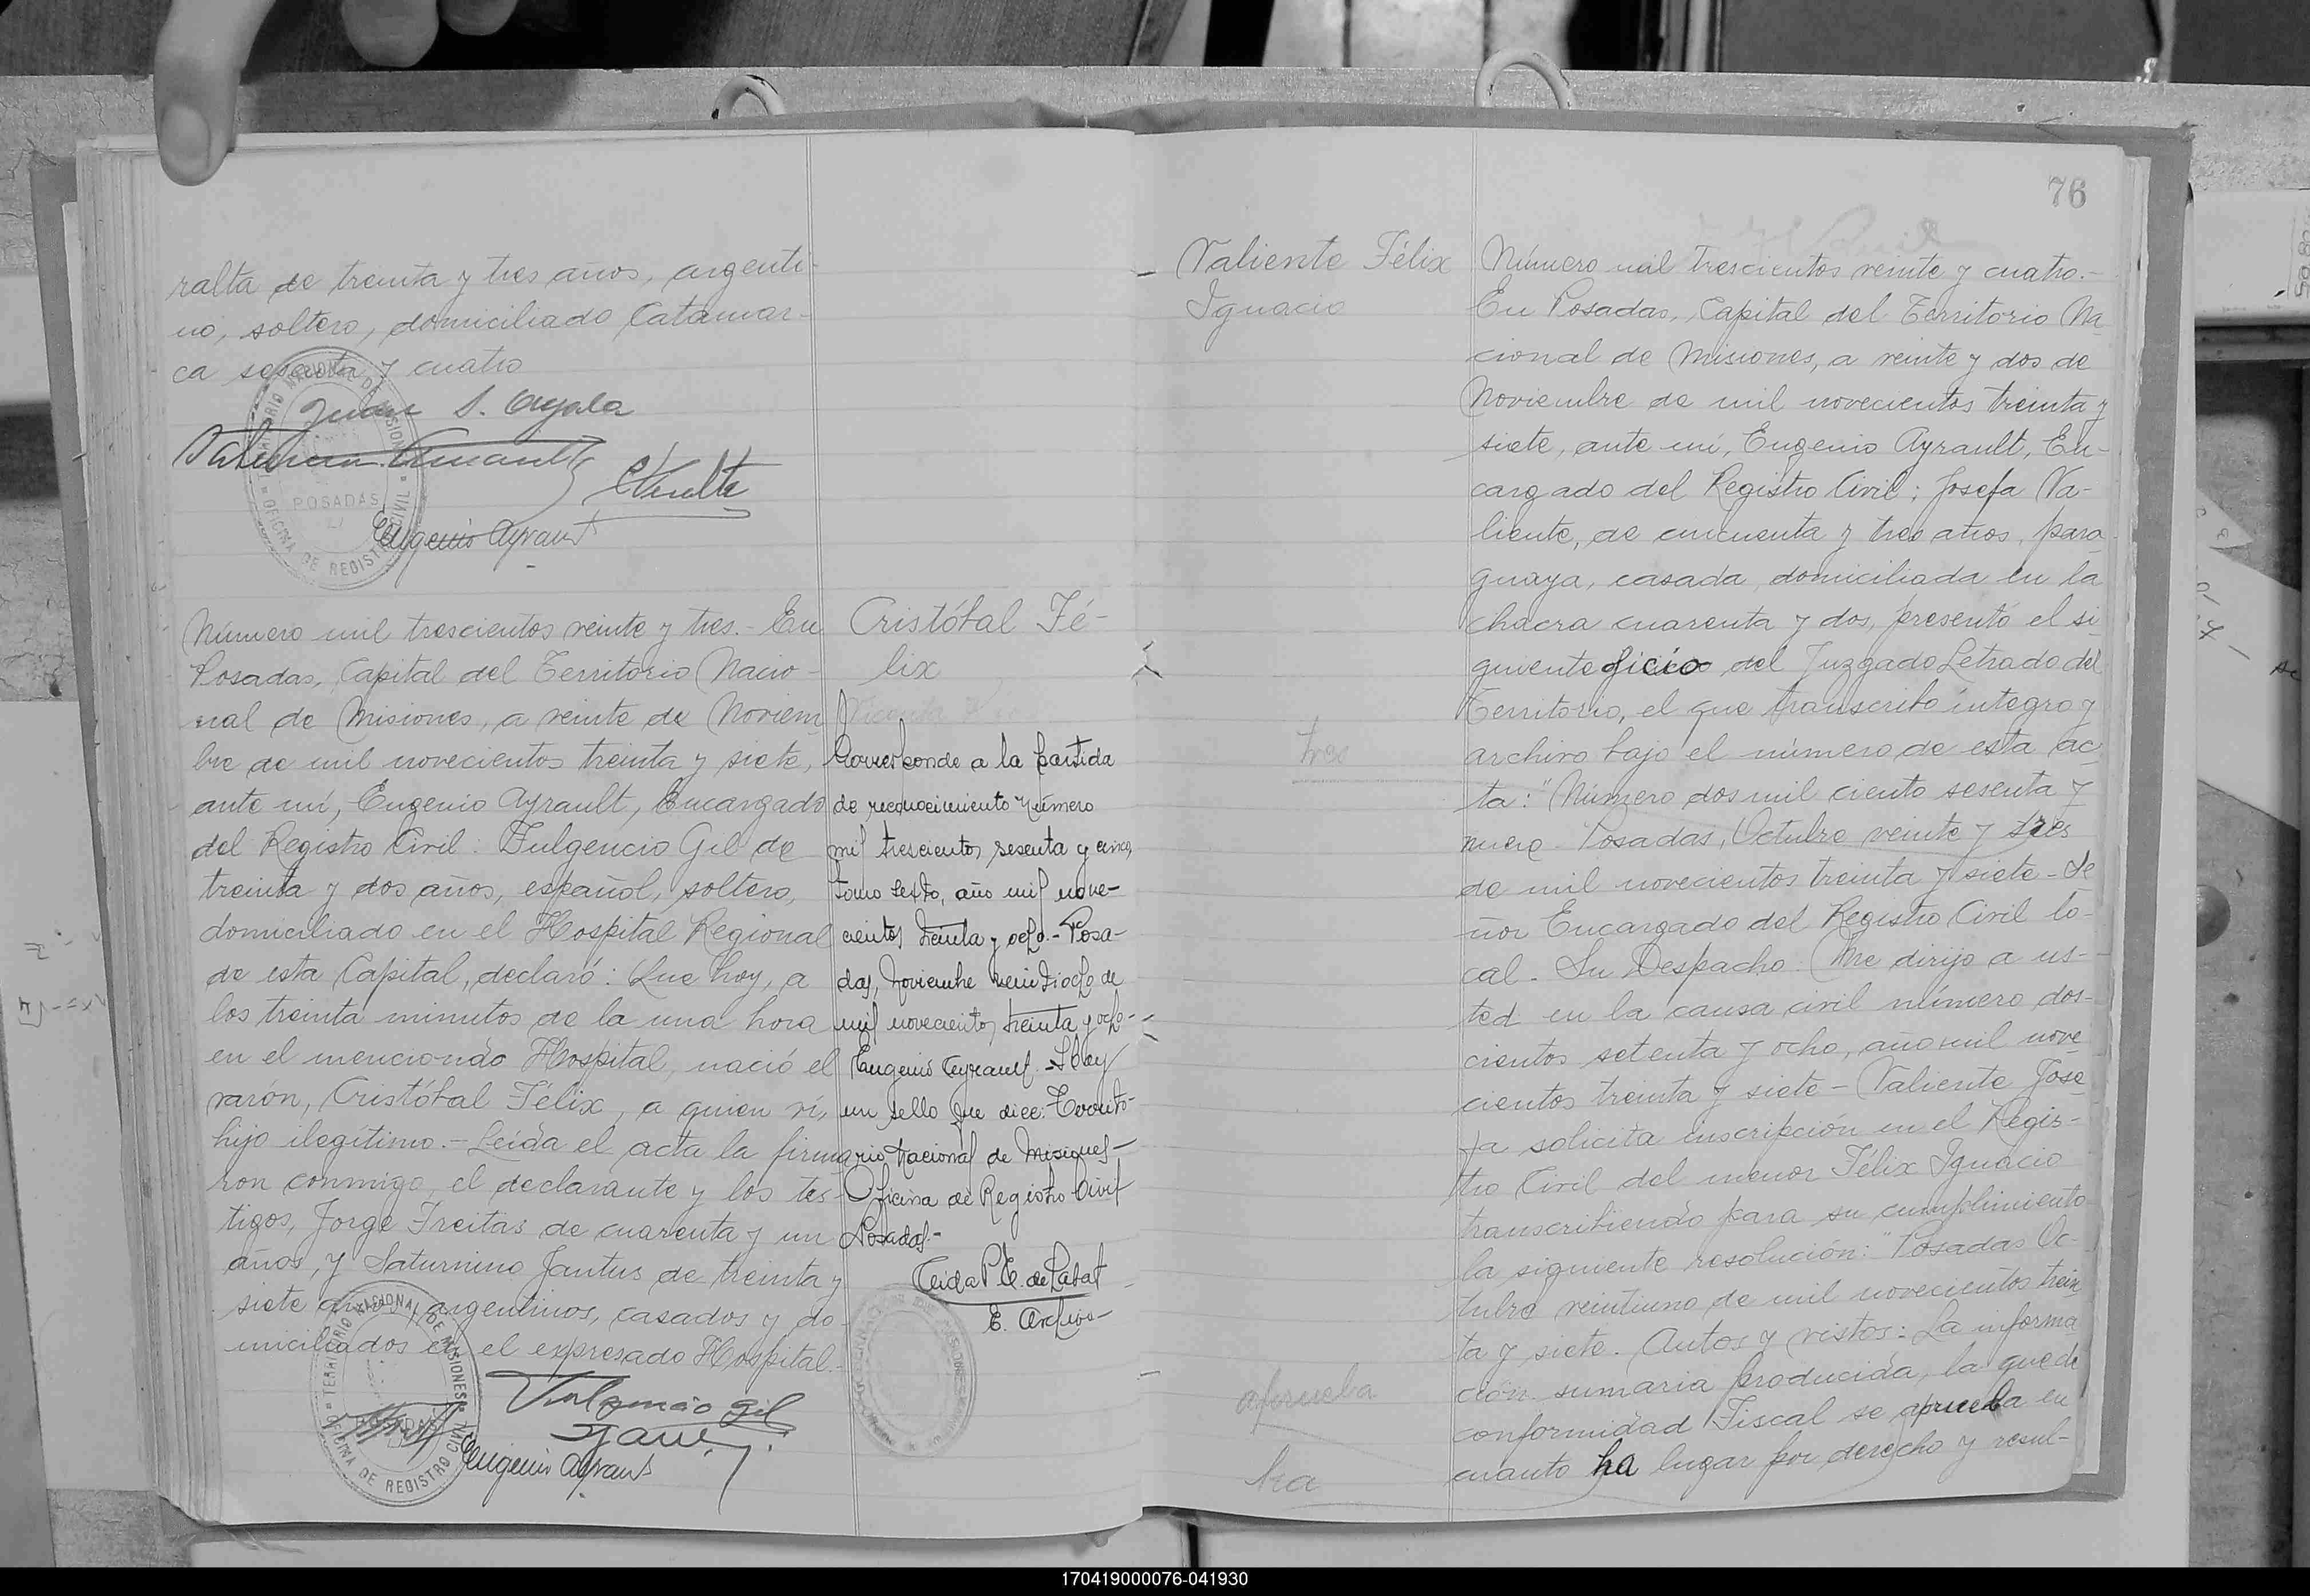 ralta de treinta y tres años, argenti-
no, soltero, domiciliado Catamar-
ca sesenta y cuatro
Juan S. Ayala
Eugenio Ayrault
TERRITORIO NACIONAL DE MISIONES
POSADAS
OFICINA DE REGISTRO CIVIL
Número mil trescientos veinte y tres.- En
Posadas, Capital del Territorio Nacio-
nal de Misiones, a veinte de Noviem
bre de mil novecientos treinta y siete,
ante mí, Eugenio Ayrault, Encargado
del Registro Civil: Fulgencio Gil de
treinta y dos años, español, soltero,
domiciliado en el Hospital Regional
de esta Capital, declaró: Que hoy, a
los treinta minutos de la una hora
en el mencionado Hospital, nació el
varón, Cristóbal Félix, a quien ví,
hijo ilegítimo.- Leída el acta la firma
ron conmigo, el declarante y los tes-
tigos, Jorge Freitas de cuarenta y un
años, y Saturnino Jantus de treinta y
siete años, argentinos, casados y do-
miciliados en el expresado Hospital.-
Fulgencio Gil
Eugenio Ayrault
TERRITORIO NACIONAL DE MISIONES
POSADAS
OFICINA DE REGISTRO CIVIL
Cristóbal Fé-
lix
Corresponde a la partida
de reconocimiento número
mil trescientos sesenta y cinco,
tomo sexto, año mil nove-
cientos treinta y ocho.- Posa-
das, Noviembre veintiocho de
mil novecientos treinta y ocho-
Eugenio Ayrault.- Hay
un sello que dice: Territo-
rio Nacional de Misiones-
Oficina de Registro Civil
Posadas.-
E. Archivo-
76
Valiente Félix
Ignacio
tres
aprueba
ha
Número mil trescientos veinte y cuatro.-
En Posadas, Capital del Territorio Na
cional de Misiones, a veinte y dos de
Noviembre de mil novecientos treinta y
siete, ante mí, Eugenio Ayrault, En-
cargado del Registro Civil; Josefa Va-
liente, de cincuenta y tres años, para
guaya, casada, domiciliada en la
chacra cuarenta y dos, presentó el si
guiente oficio del Juzgado Letrado del
Territorio, el que transcribo íntegro y
archivo bajo el número de esta ac
ta: "Número dos mil ciento sesenta y
nueve. Posadas, Octubre veinte y tres
de mil novecientos treinta y siete - Se
ñor Encargado del Registro Civil lo-
cal. Su Despacho. Me dirijo a us-
ted en la causa civil número dos-
cientos setenta y ocho, año mil nove
cientos treinta y siete - Valiente Jose
fa solicita inscripción en el Regis-
tro Civil del menor Félix Ignacio
transcribiendo para su cumplimiento
la siguiente resolución: "Posadas Oc-
tubre veintiuno de mil novecientos trein
ta y siete. Autos y vistos: La informa
ción sumaria producida, la que de
conformidad Fiscal se aprueba en
cuanto ha lugar por derecho y resul-
170419000076-041930